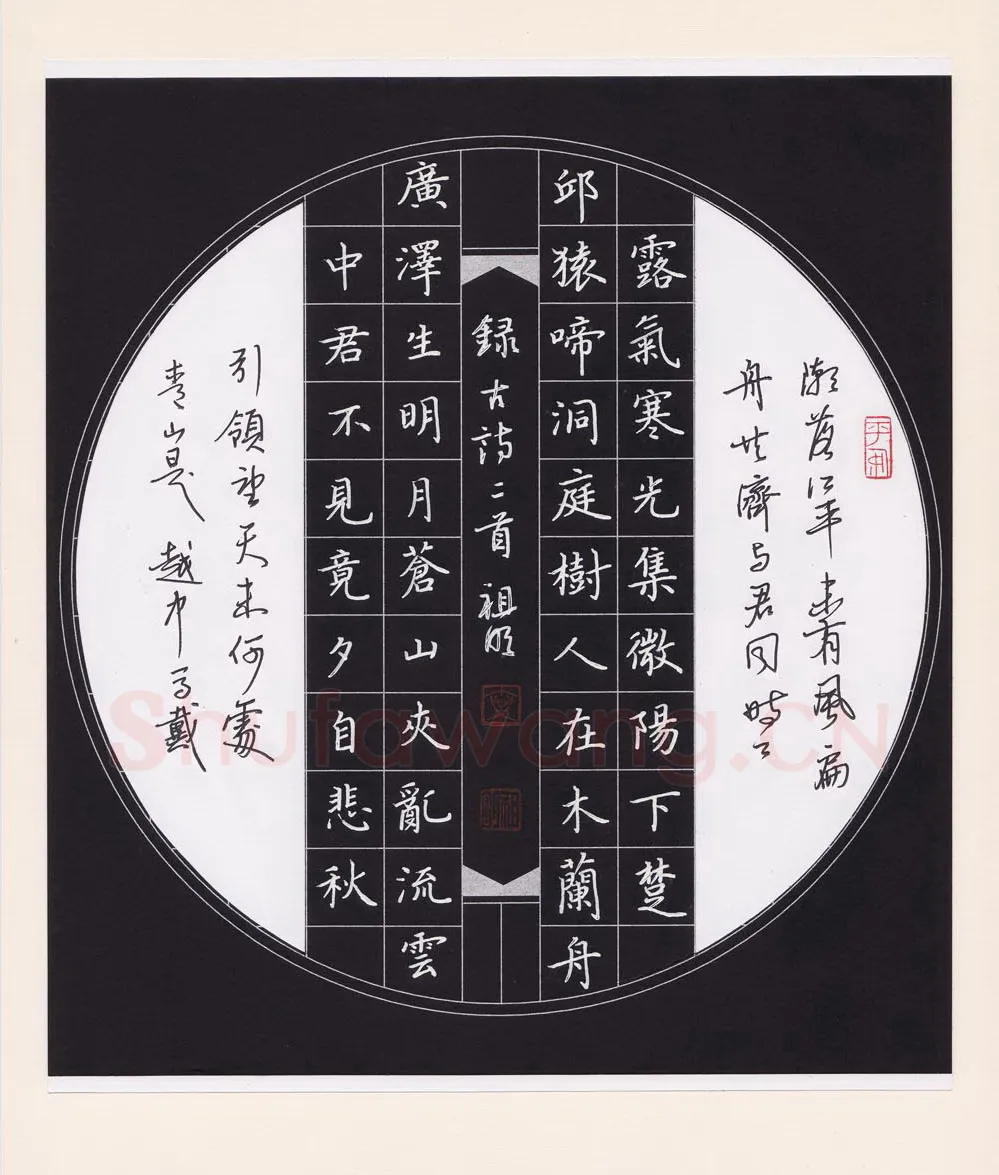 潮落江平未有風扁
舟共濟与君同時々
露氣寒光集微陽下楚
邱猿啼洞庭樹人在木蘭舟
録古詩二首 祖明
廣澤生明月蒼山夾亂流雲
中君不見竟夕自悲秋
引領望天末何處
青山是越中马戴
Shufawang.CN